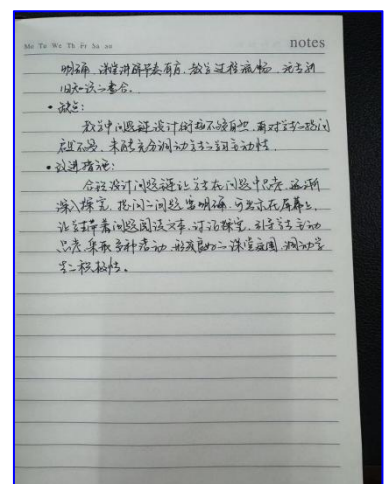 Mo Tu We Th Fr Sa Su notes
明确，课堂讲解节奏有序，教学过程流畅，注重新
旧知识之整合。
·缺点：
教学中问题链设计衔接不够自然，面对学生之提问
应变不够，未能充分调动学生之主动性。
·改进措施：
合理设计问题链让学生在问题中思考，逐渐
深入探究，提问之问题要明确，可出示在屏幕上，
让学生带着问题阅读文本，讨论探究，引导学生主动
思考，采取多种活动，形成良好之课堂氛围，调动学
生之积极性。